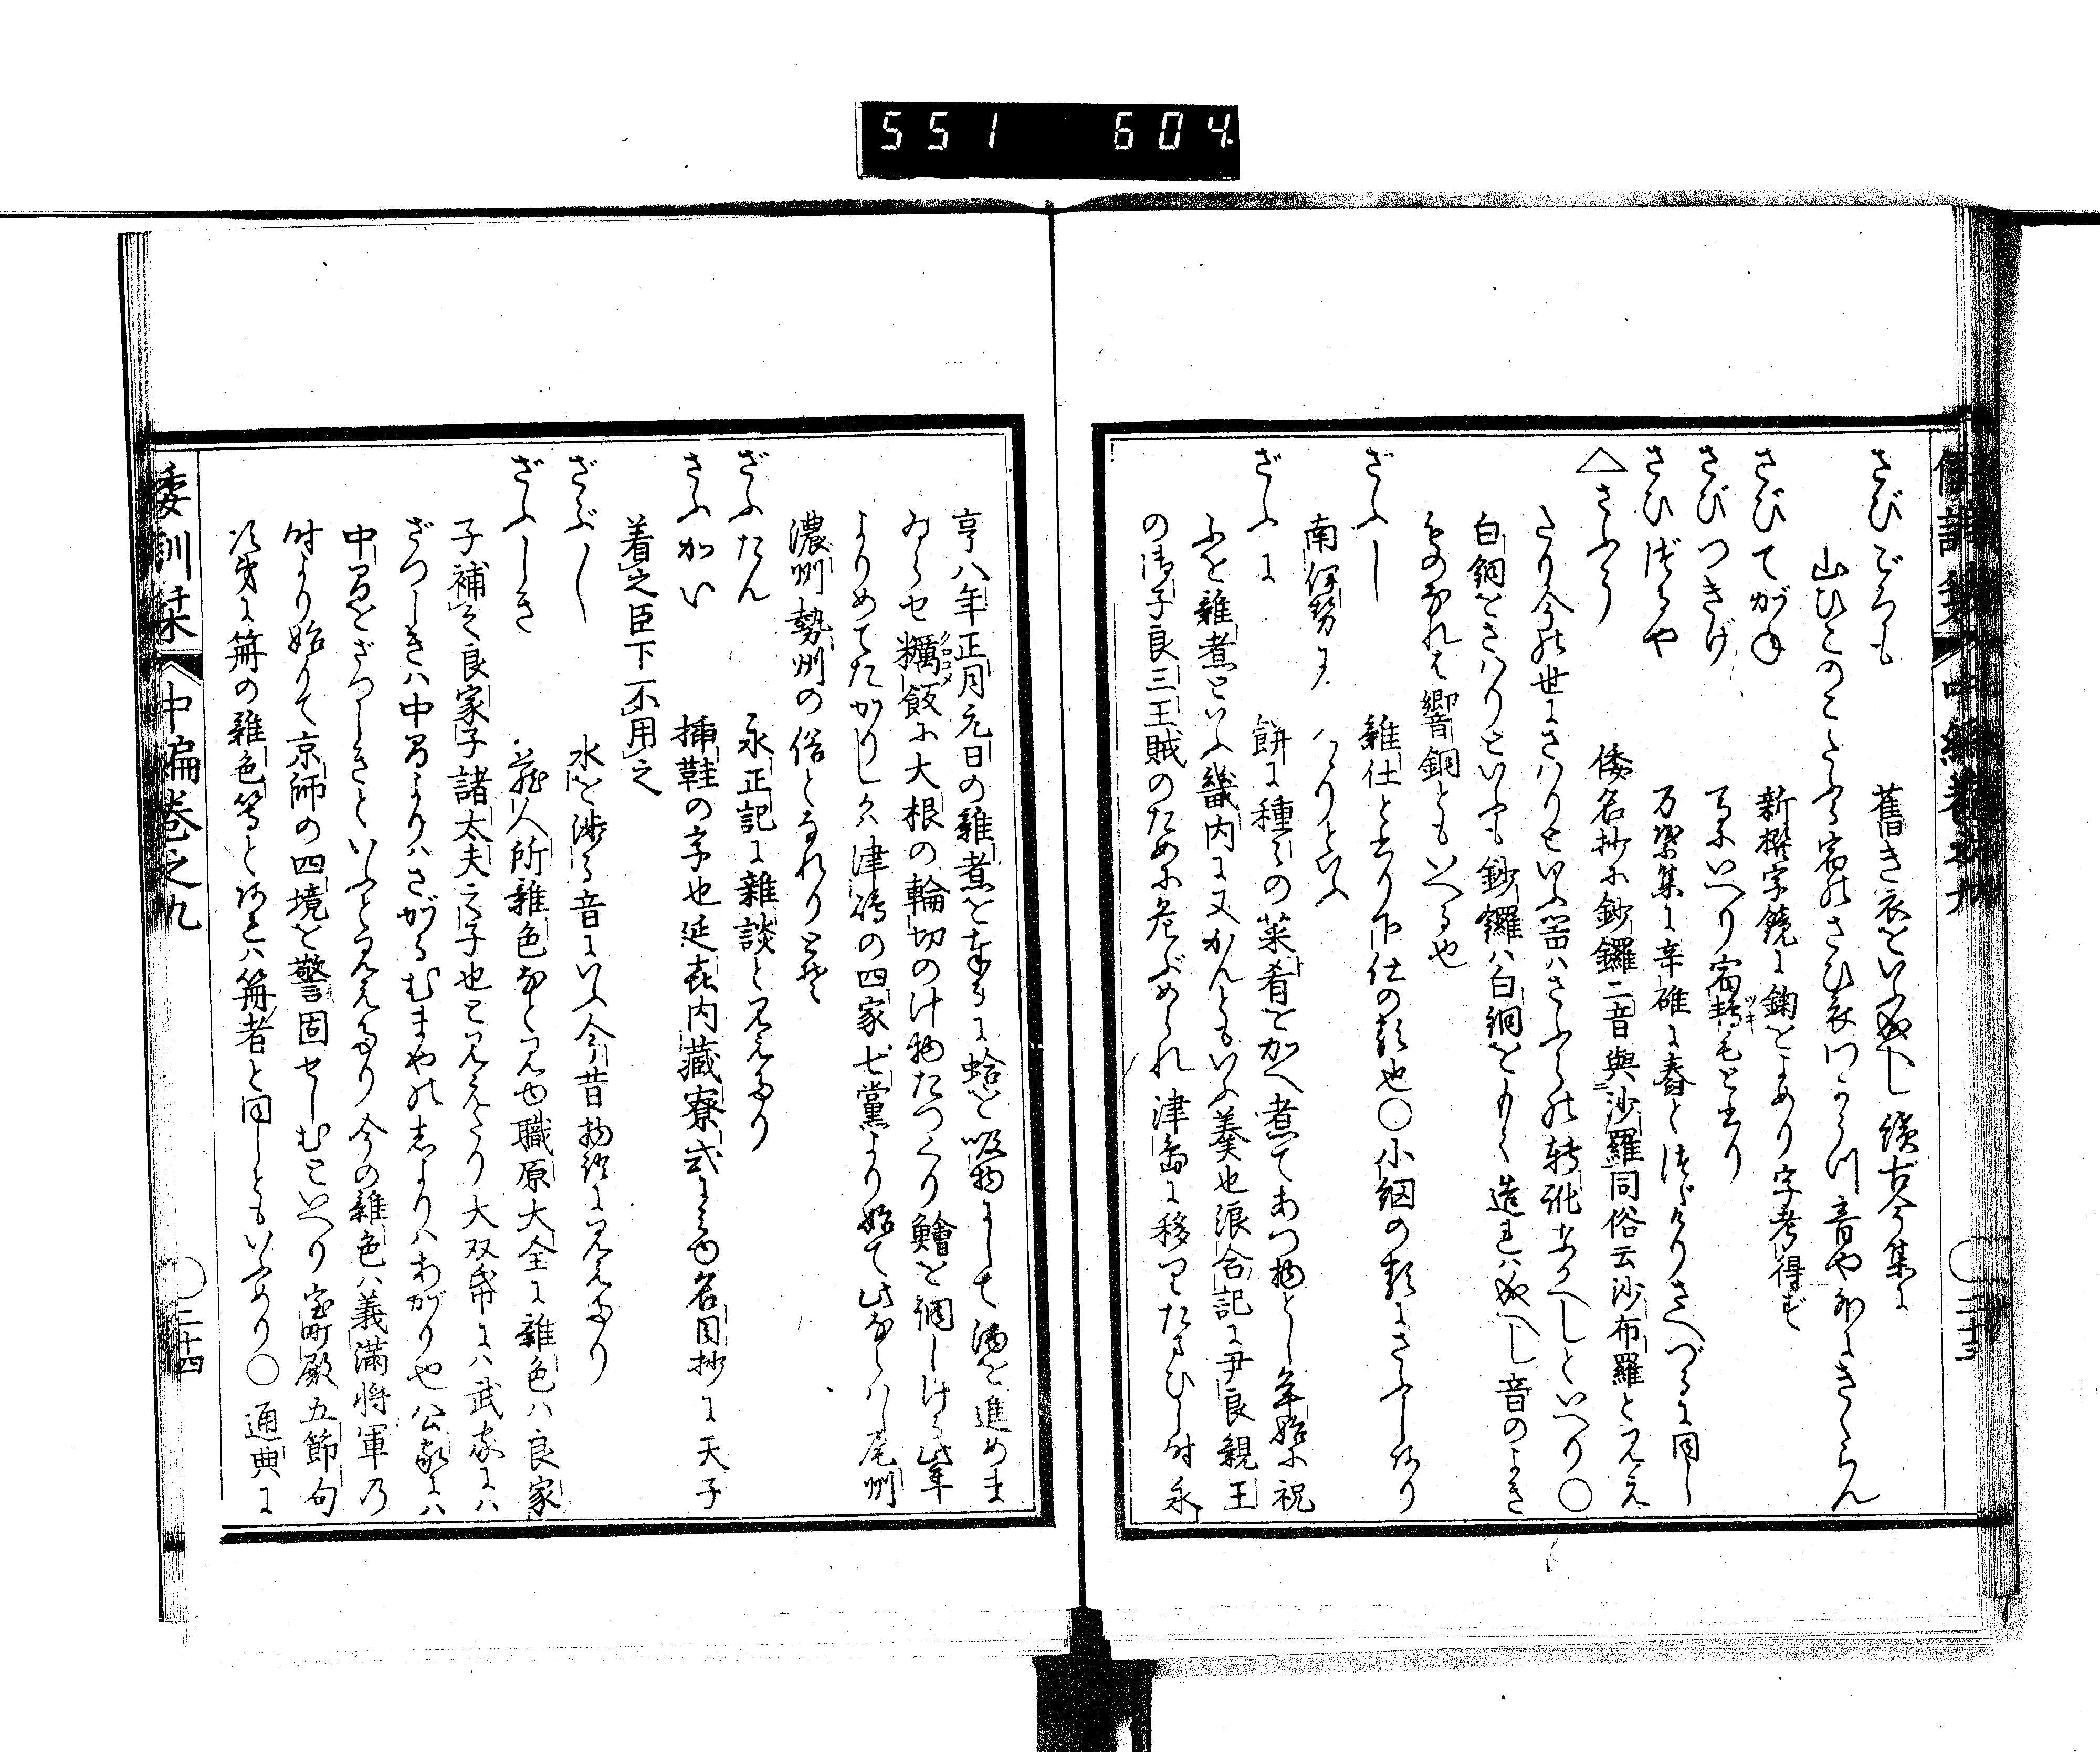 551 604
さびごろも 舊き衣をいふ成へし續古今集に
山ひこのこたふる宿のさひ衣つちうつ音やほにきくらん
さびてがね 新撰字鏡に鋼をよめり字考得ず
さびつきげ 馬にいへり宿鴾毛と書り
さひづるや 万葉集に辛碓に舂とつゞけりさへづるに同し
△さふら 倭名抄に鈔鑼二音與沙羅同俗云沙布羅とみえ
たり今の世にさはりといふ器はさふらの転訛なるへしといへり〇
白銅をさはりといふも鈔鑼は白銅をもて造れは成へし音のよき
ものなれは響銅ともいへる也
ざふし 雑仕と書り下仕の類也〇小細の類にさふしあり
南伊勢に
ざふに 餅に種々の菜肴を加へ煮てあつ物とし年始に祝
ふを雑煮といふ畿内に又かんともいふ羹也浪合記に尹良親王
の御子良三王賊のために危ぶめられ津島に移りたまひし時永
亨八年正月元日の雑煮を奉るに蛤を吸物にして酒を進めま
ゐらせ糲飯に大根の輪切のけ物たつくり鱠を調しける此年
よりめてたかりしが津島の四家七黨より始て此ならはし尾州
濃州勢州の俗となれりとそ
ざふたん 永正記に雑談と見えたり
さふかい 挿鞋の字也延喜内藏寮式にみゆ名目抄に天子
着之臣下不用之
ざぶし 水を渉る音にいふ今昔物語に見えたり
ざふしき 藏人所雑色なとみゆ職原大全に雑色は良家
子補之良家子諸太夫之子也と見えたり大双帋には武家には
ざつしきは中間よりはさがるむまやの者よりはあがりや公家には
中間をざつしきといふとみえたり今の雑色は義満将軍乃
時より始りて京師の四境を警固せしむといへり室町殿五節句
次第に篝の雑色等とあるは篝者と同しともいふめり〇通典に
倭訓栞 中編巻之九 〇二十四